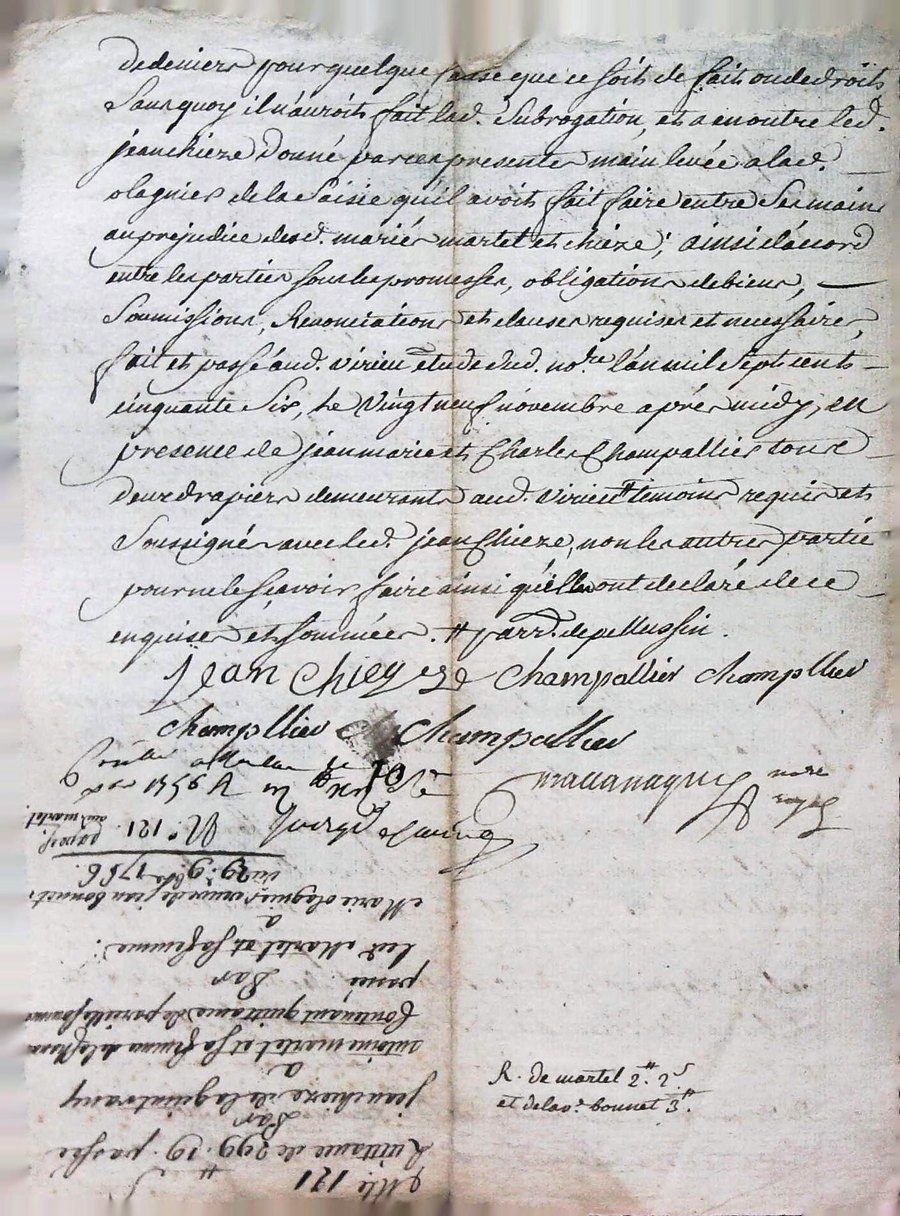 de deniers pour quelque cause que ce soit de fait ou de droit
Sans quoy il n'auroit fait lad. Subrogation, et a en outre led.
jean chieze Donné par ces presentes main levée a lad.
olagnier de la Saisie qu'il avoit fait faire entre Ses mains
au prejudice desd. mariés martel et chieze; ainsi d'acord
entre les parties sous les promesses, obligations de biens,
Soumissions, Renonciations et clauses requises et necessaires,
fait et passé aud. virieu etude dud. no.re l'an mil Sept cent
cinquante Six, Le Vingt neuf novembre aprés midy, en
presence de jean marie et Charles Champallier tous
deux drapiers demeurants aud. virieu # temoins requis et
Soussignés avec led. jean Chieze, non les autres partie
pour ne le sçavoir faire ainsi qu'elles ont declaré de ce
enquises et sommées. # parr. de pellussin.
Jean chieyze Champallier champllier
champllier champallier
N.° 121.
du 29: 9bre 1756.
Marie olagnier veuve de jean bonnet
a
led Martel et sa femme.
Par
Contenant quittance de pareille somme
antoine martel et sa femme
a
jean chieze de la
Par
Quittance de 299.# 19. passée
121
R. de martel 2.# 2.s
et de la v.e bonnet 3.#